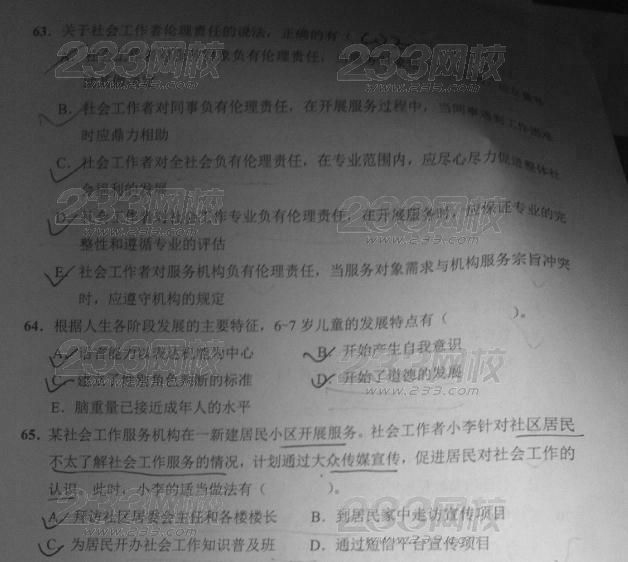 63. 关于社会工作者伦理责任的说法，正确的有（
A. 社会工作者 象负有伦理责任，
B. 社会工作者对同事负有伦理责任，在开展服务过程中，当同事遇到工作困难
时应鼎力相助
C. 社会工作者对全社会负有伦理责任，在专业范围内，应尽心尽力促进整体社
会福利的发展
D. 社会工作者对社会工作专业负有伦理责任，在开展服务时，应保证专业的完
整性和遵循专业的评估
E. 社会工作者对服务机构负有伦理责任，当服务对象需求与机构服务宗旨冲突
时，应遵守机构的规定
64. 根据人生各阶段发展的主要特征，6~7岁儿童的发展特点有（ ）。
A. 语言能力以表达机能为中心 B. 开始产生自我意识
C. 建立了性别角色判断的标准 D. 开始了道德的发展
E. 脑重量已接近成年人的水平
65. 某社会工作服务机构在一新建居民小区开展服务。社会工作者小李针对社区居民
不太了解社会工作服务的情况，计划通过大众传媒宣传，促进居民对社会工作的
认识。此时，小李的适当做法有（ ）。
A. 拜访社区居委会主任和各楼楼长 B. 到居民家中走访宣传项目
C. 为居民开办社会工作知识普及班 D. 通过短信平台宣传项目
233网校
www.233.com